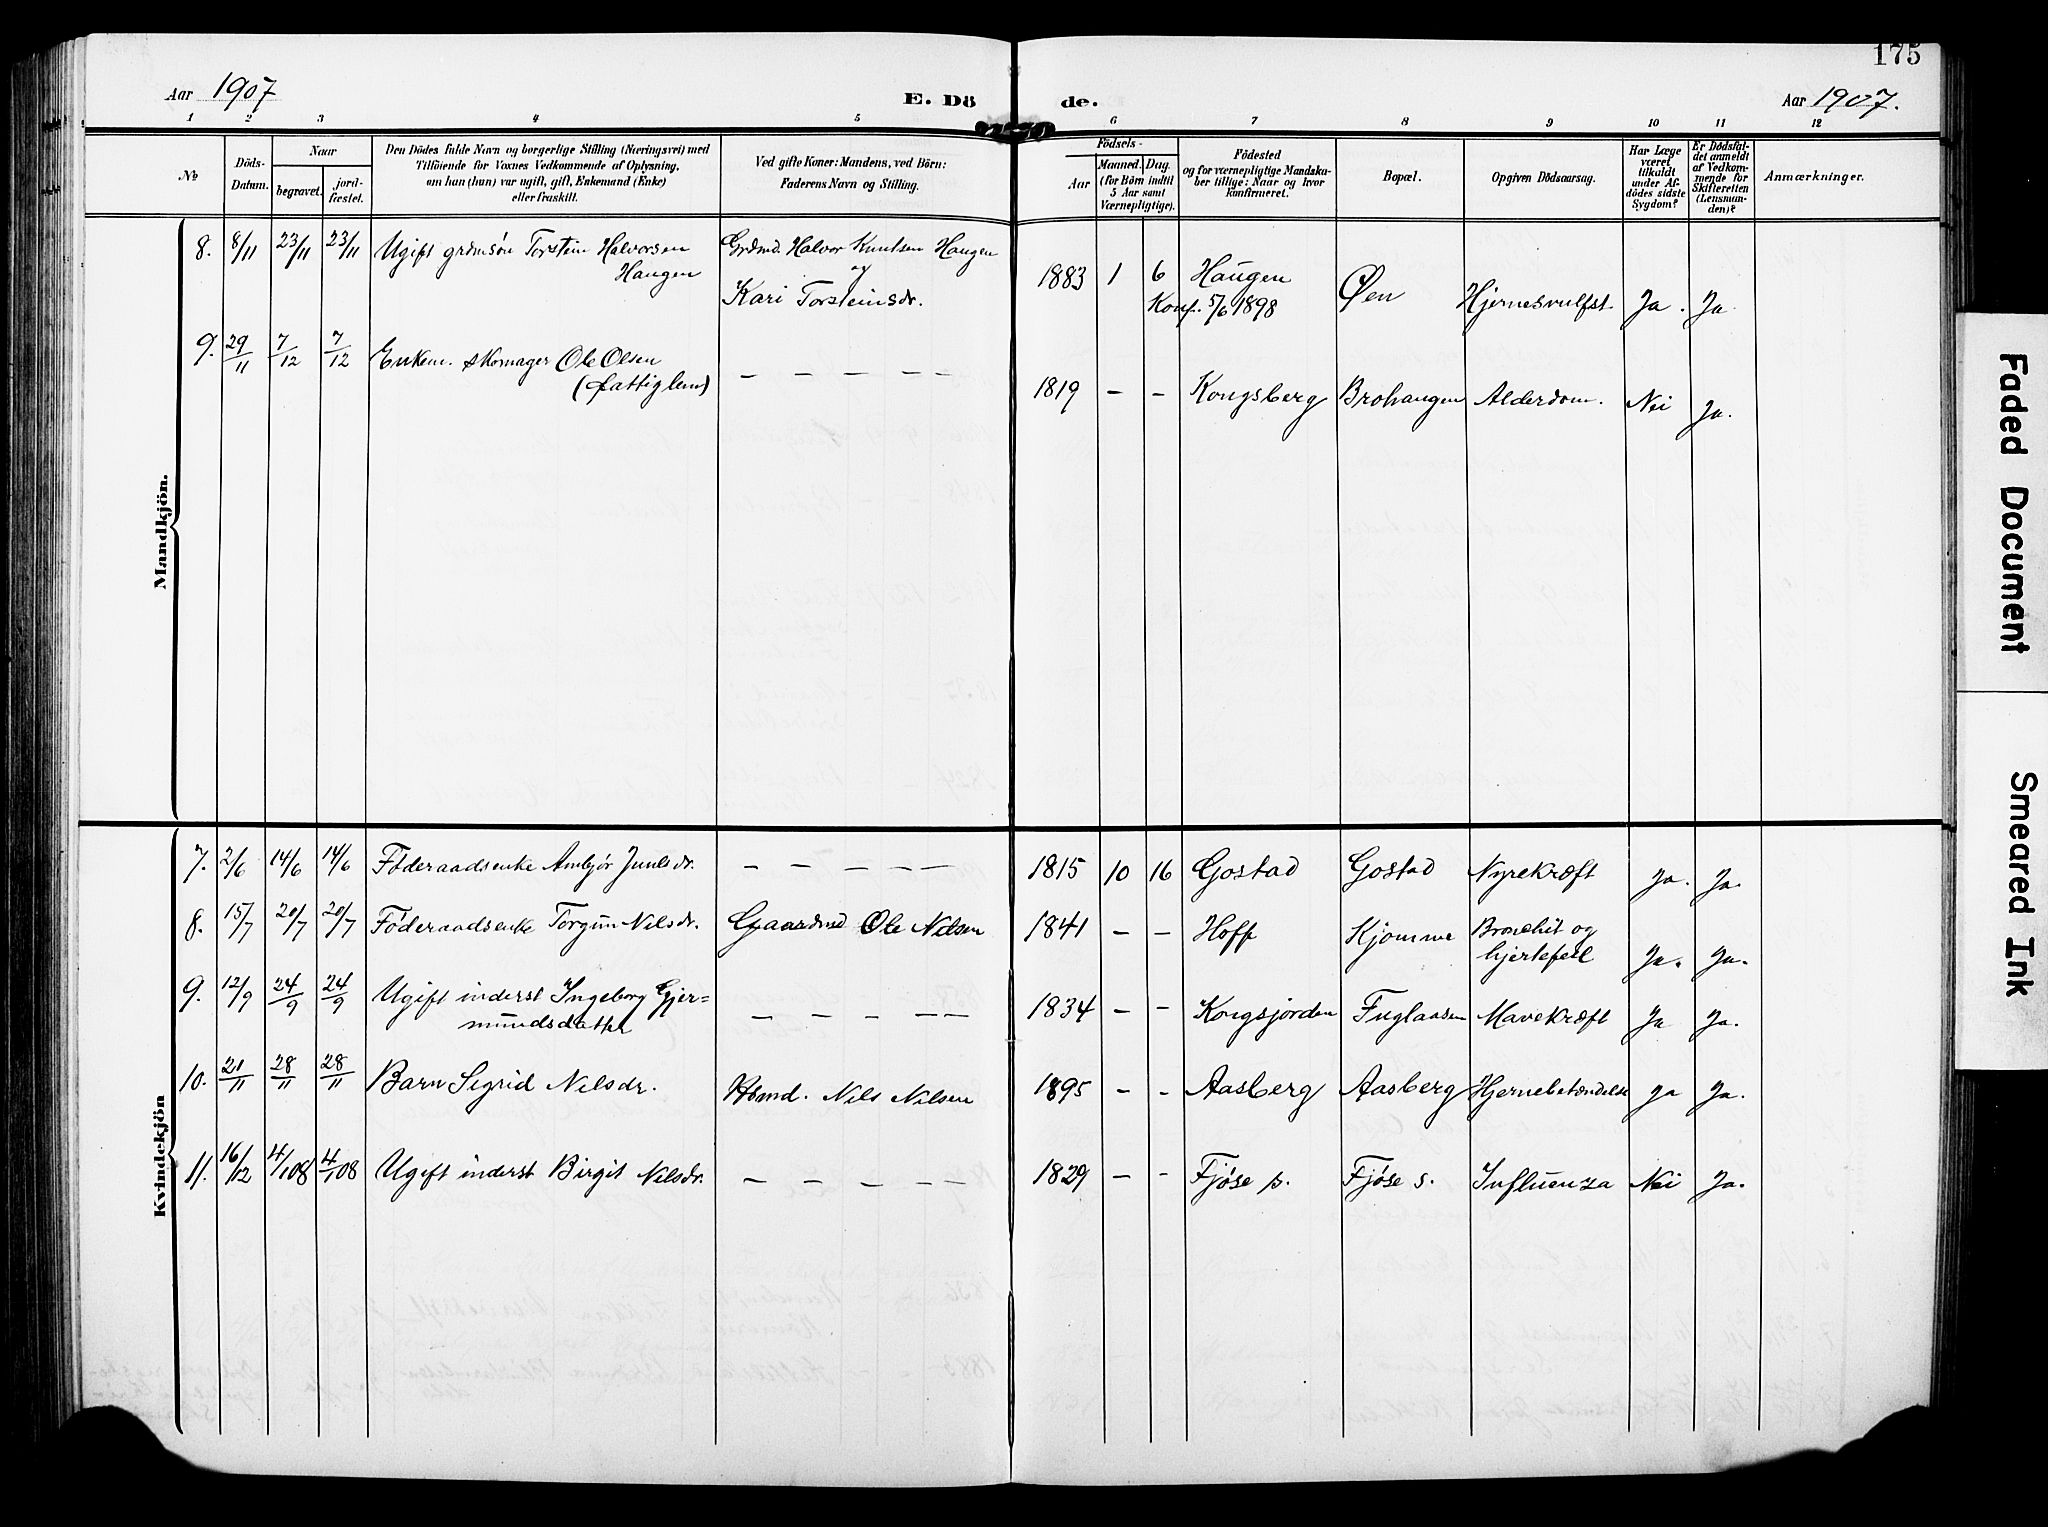 175
Aar 1907
E. Dö
de.
Aar 1907.
1 2 3 4 5 6 7 8 9 10 11 12
No
Döds-
Datum.
Naar
begravet.
jord-
fæstet.
Den Dödes fulde Navn og borgerlige Stilling (Næringsvei) med
Tilföiende for Voxnes Vedkommende af Oplysning,
om han (hun) var ugift, gift, Enkemand (Enke)
eller fraskilt.
Ved gifte Koner: Mandens, ved Börn:
Faderens Navn og Stilling.
Födsels-
Aar
Maaned.
Dag.
(for Börn indtil
5 Aar samt
Værnepligtige).
Födested
og for værnepligtige Mandska-
ber tillige: Naar og hvor
konfirmeret.
Bopæl.
Opgiven Dödsaarsag.
Har Læge
været
tilkaldt
under Af-
dödes sidste
Sygdom?
Er Dödsfal-
det anmeldt
af Vedkom-
mende for
Skifteretten
(Lensman-
den)?
Anmærkninger.
Mandkjön.
8. 8/11 23/11 23/11 Ugift grdmsøn Torstein Halvorsen
Haugen
Grdmd. Halvor Knutsen Haugen
og
Kari Torsteinsdr.
1883 1 6 Haugen
Konf. 5/6 1898
Øen Hjernesvulst Ja. Ja.
9. 29/11 7/12 7/12 Enkem. skomager Ole Olsen
(fattiglem)
— — — — —
1819 - - Kongsberg Brohaugen Alderdom. Nei Ja.
Kvindekjön
7. 2/6 14/6 14/6 Føderaadsenke Ambjør Juulsdr. — — — — — 1815 10 16 Gostad Gostad Nyrekræft Ja. Ja.
8. 15/7 20/7 20/7 Føderaadsenke Torgun Nilsdr. Gaardmd Ole Nilsen 1841 - - Hoff Kjomme Bronchit og
hjertefeil Ja. Ja.
9. 12/9 24/9 24/9 Ugift inderst Ingeborg Gjer=
mundsdatter — — — — — 1834 - - Kongsjorden Fuglaasen Mavekræft Ja Ja.
10. 21/11 28/11 28/11 Barn Sigrid Nilsdr. Hbmd. Nils Nilsen 1895 - - Aasberg Aasberg Hjernebetændelse Ja Ja.
11. 16/12 4/1 08 4/1 08 Ugift inderst Birgit Nilsdr. — — — — — 1829 - - Fjøse s. Fjøse s. Influenza Nei Ja.
Faded Document
Smeared Ink